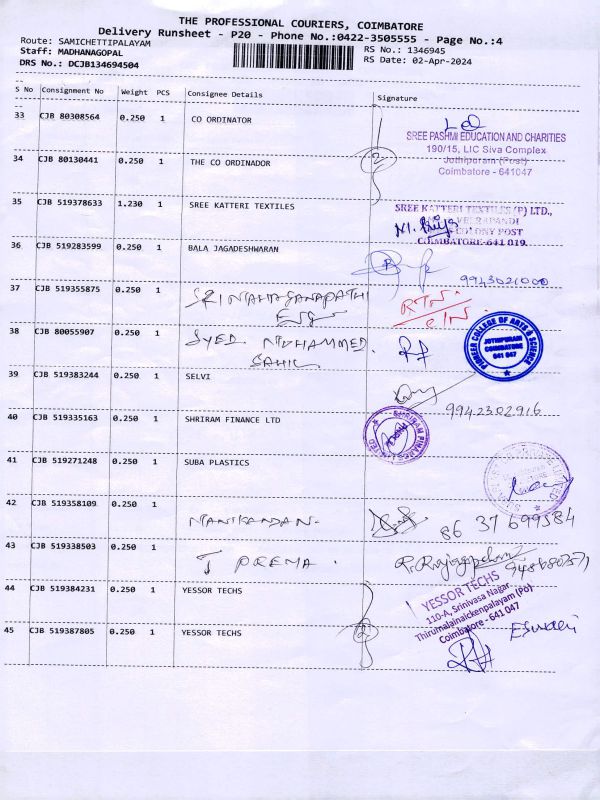 THE PROFESSIONAL COURIERS, COIMBATORE
Delivery Runsheet - P20 - Phone No.:0422-3505555 - Page No.:4
Route: SAMICHETTIPALAYAM RS No.: 1346945
Staff: MADHANAGOPAL RS Date: 02-Apr-2024
DRS No.: DCJB134694504
S No Consignment No Weight PCS Consignee Details Signature
33 CJB 80308564 0.250 1 CO ORDINATOR
SREE PASHMI EDUCATION AND CHARITIES
190/15, LIC Siva Complex
Jothipuram (Post)
Coimbatore - 641047
34 CJB 80130441 0.250 1 THE CO ORDINADOR
35 CJB 519378633 1.230 1 SREE KATTERI TEXTILES
SREE KATTERI TEXTILES (P) LTD.,
COLONY POST
COIMBATORE-641 019.
36 CJB 519283599 0.250 1 BALA JAGADESHWARAN
9943021000
37 CJB 519355875 0.250 1 SRI MAHAGANAPATHI
ENG
RTN
38 CJB 80055907 0.250 1 SYED MOHAMMED
SAHIL
PIONEER COLLEGE OF ARTS & SCIENCE
JOTHIPURAM
COIMBATORE
641 047
39 CJB 519383244 0.250 1 SELVI
9942302916
40 CJB 519335163 0.250 1 SHRIRAM FINANCE LTD
41 CJB 519271248 0.250 1 SUBA PLASTICS
42 CJB 519358109 0.250 1 MANIKANDAN
86 37 699584
43 CJB 519338503 0.250 1 T PREMA.
R. Rajagopalan
44 CJB 519384231 0.250 1 YESSOR TECHS
YESSOR TECHS
110-A, Srinivasa Nagar
Thirumalainaickenpalayam (Po)
Coimbatore - 641 047
Eswari
45 CJB 519387805 0.250 1 YESSOR TECHS